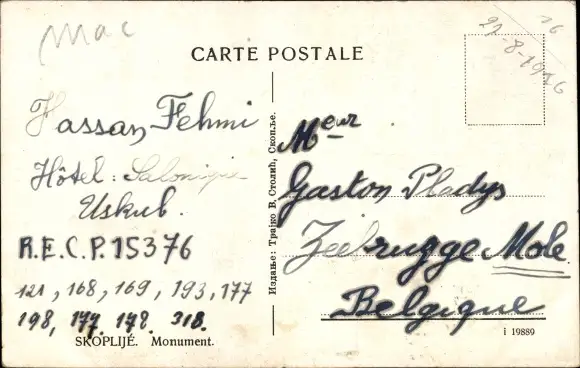 Mac
CARTE POSTALE
16
27-8-1926
Hassan Fehmi
Hôtel: Salonique
Uskub.
R.E.C.P. 15376
121, 168, 169, 193, 177
198, 177. 178. 318.
SKOPLIJÉ. Monument.
Издање: Трајко В, Столић, Скопље.
Meur
Gaston Pladys
Zeebrugge Mole
Belgique
i 19889